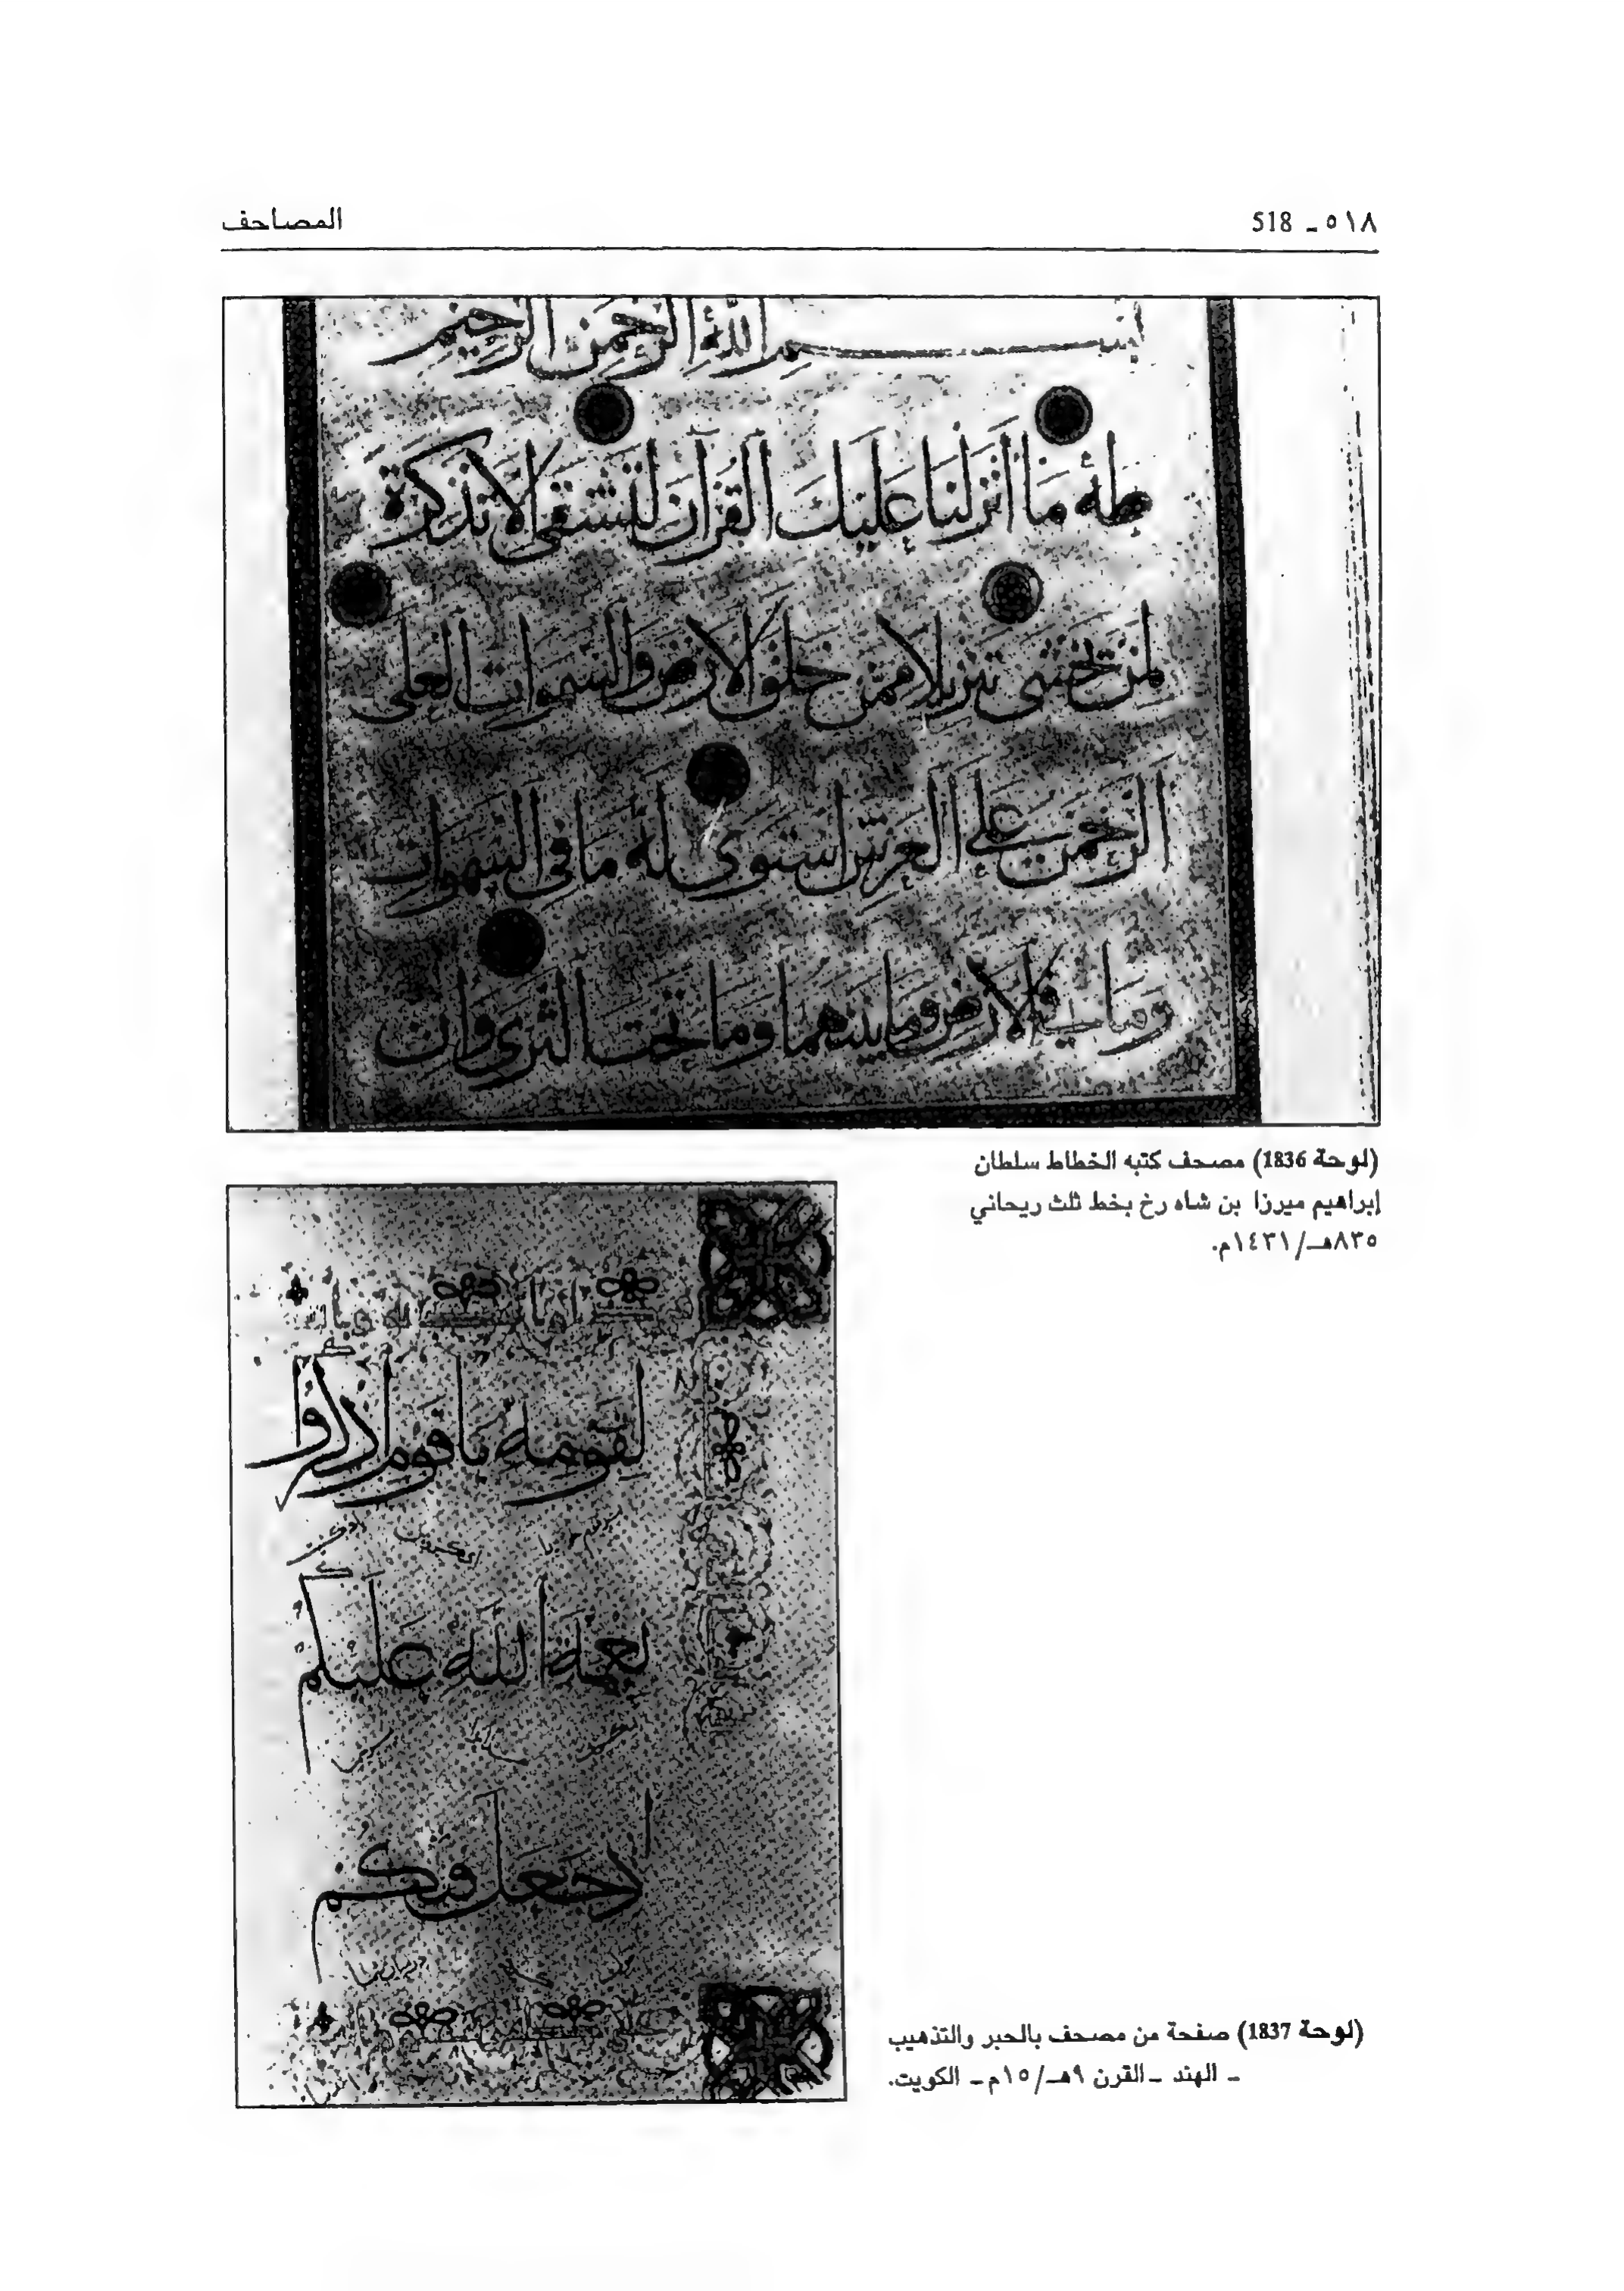 ٥١٨ - 518
المصاحف
بسم الله الرحمن الرحيم
طه ما أنزلنا عليك القرآن لتشقى الا تذكرة
لمن يخشى تنزيلا ممن خلق الارض والسموات العلى
الرحمن على العرش استوى له ما في السموات
وما في الارض وما بينهما وما تحت الثرى وان
(لوحة 1836) مصحف كتبه الخطاط سلطان
إبراهيم ميرزا بن شاه رخ بخط ثلث ريحاني
٨٣٥هـ/١٤٣١م.
لقومه يا قوم اذكروا
نعمة الله عليكم
اذ جعل فيكم
(لوحة 1837) صفحة من مصحف بالحبر والتذهيب
- الهند - القرن ٩هـ/١٥م - الكويت.